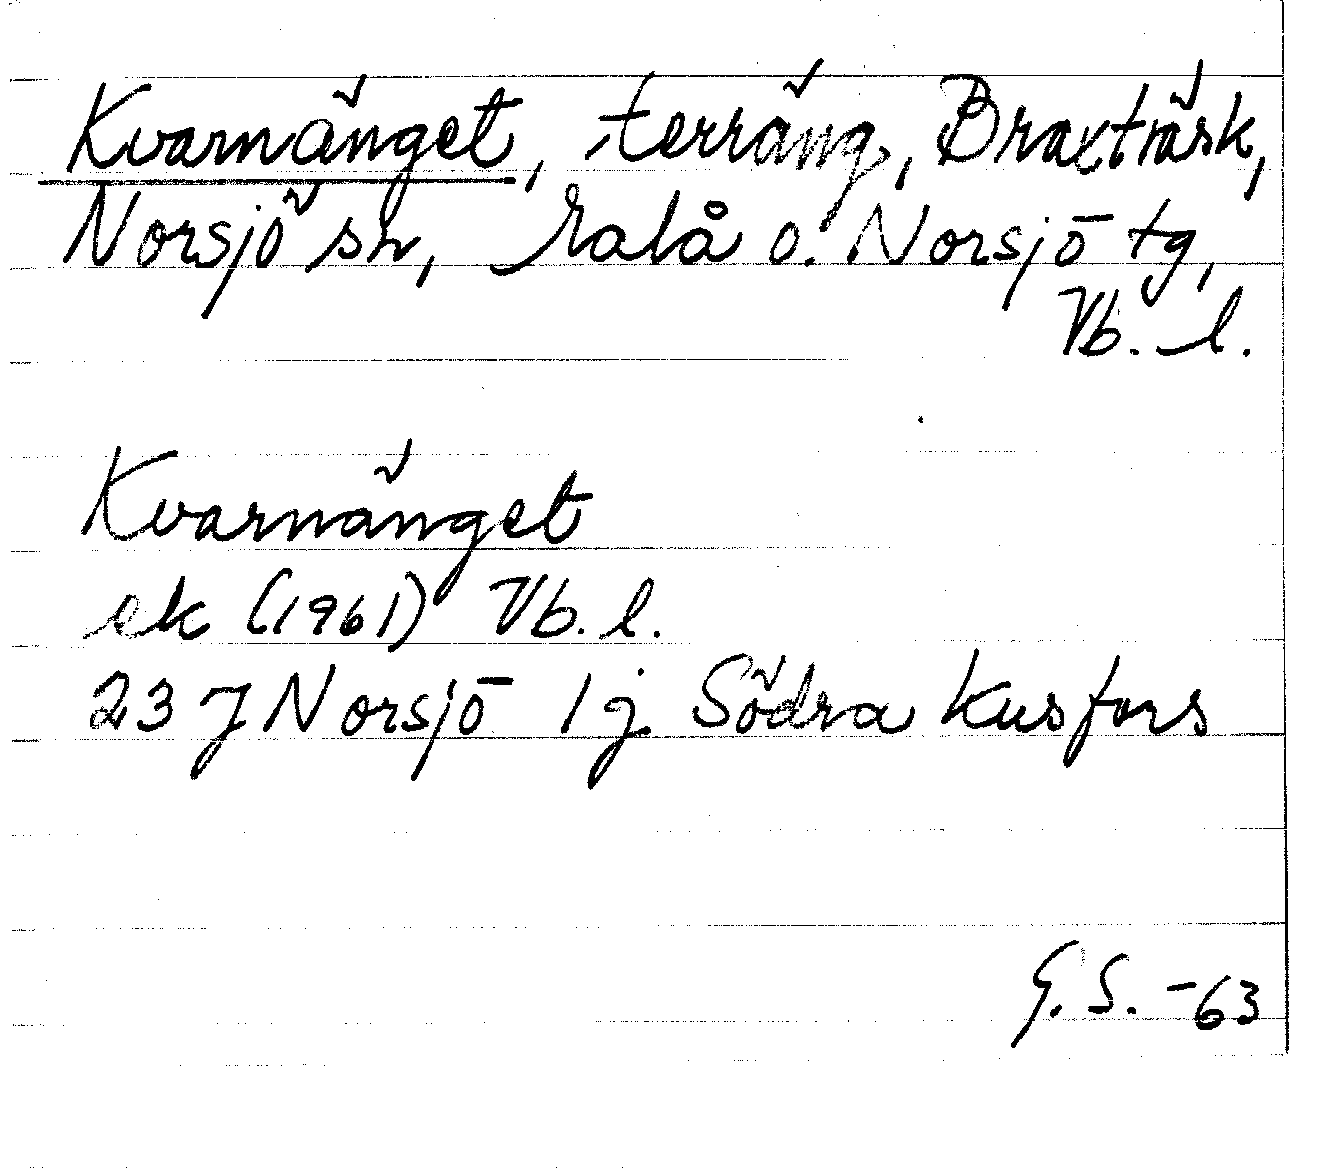 Kvarnänget, terräng, Braxträsk,
Norsjö sn, Malå o. Norsjö tg,
Vb. l.
Kvarnänget
ek (1961) Vb. l.
23 J Norsjö 1 j Södra Kusfors
G. S. -63